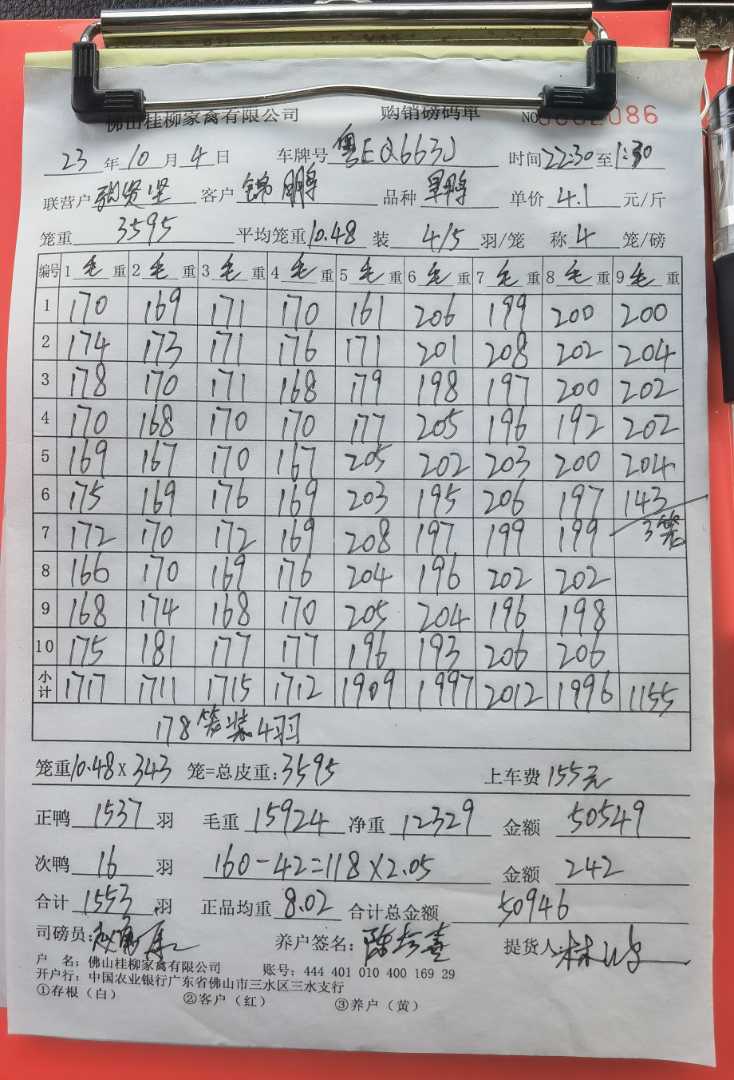 佛山桂柳家禽有限公司 购销磅码单 NO 086
23 年 10 月 4 日 车牌号 粤EQ663J 时间 22:30 至 1:30
联营户 张贤坚 客户 锦鹏 品种 单价 4.1 元/斤
笼重 3595 平均笼重 10.48 装 4/5 羽/笼 称 4 笼/磅
编号 1 毛 重 2 毛 重 3 毛 重 4 毛 重 5 毛 重 6 毛 重 7 毛 重 8 毛 重 9 毛 重
1 170 169 171 170 161 206 199 200 200
2 174 173 171 176 171 201 208 202 204
3 178 170 171 168 179 198 197 200 202
4 170 168 170 170 177 205 196 192 202
5 169 167 170 167 205 202 203 200 204
6 175 169 176 169 203 195 206 197 143
7 172 170 172 169 208 197 199 199 3笼
8 166 170 169 176 204 196 202 202
9 168 174 168 170 205 204 196 198
10 175 181 177 177 196 193 206 206
小计 1717 1711 1715 1712 1909 1997 2012 1996 1155
178笼装4羽
笼重 10.48 X 343 笼=总皮重: 3595 上车费 155元
正鸭 1537 羽 毛重 15924 净重 12329 金额 50549
次鸭 16 羽 160-42=118X2.05 金额 242
合计 1553 羽 正品均重 8.02 合计总金额 50946
司磅员: 养户签名: 提货人:
户 名: 佛山桂柳家禽有限公司 账号: 444 401 010 400 169 29
开户行: 中国农业银行广东省佛山市三水区三水支行
①存根（白） ②客户（红） ③养户（黄）